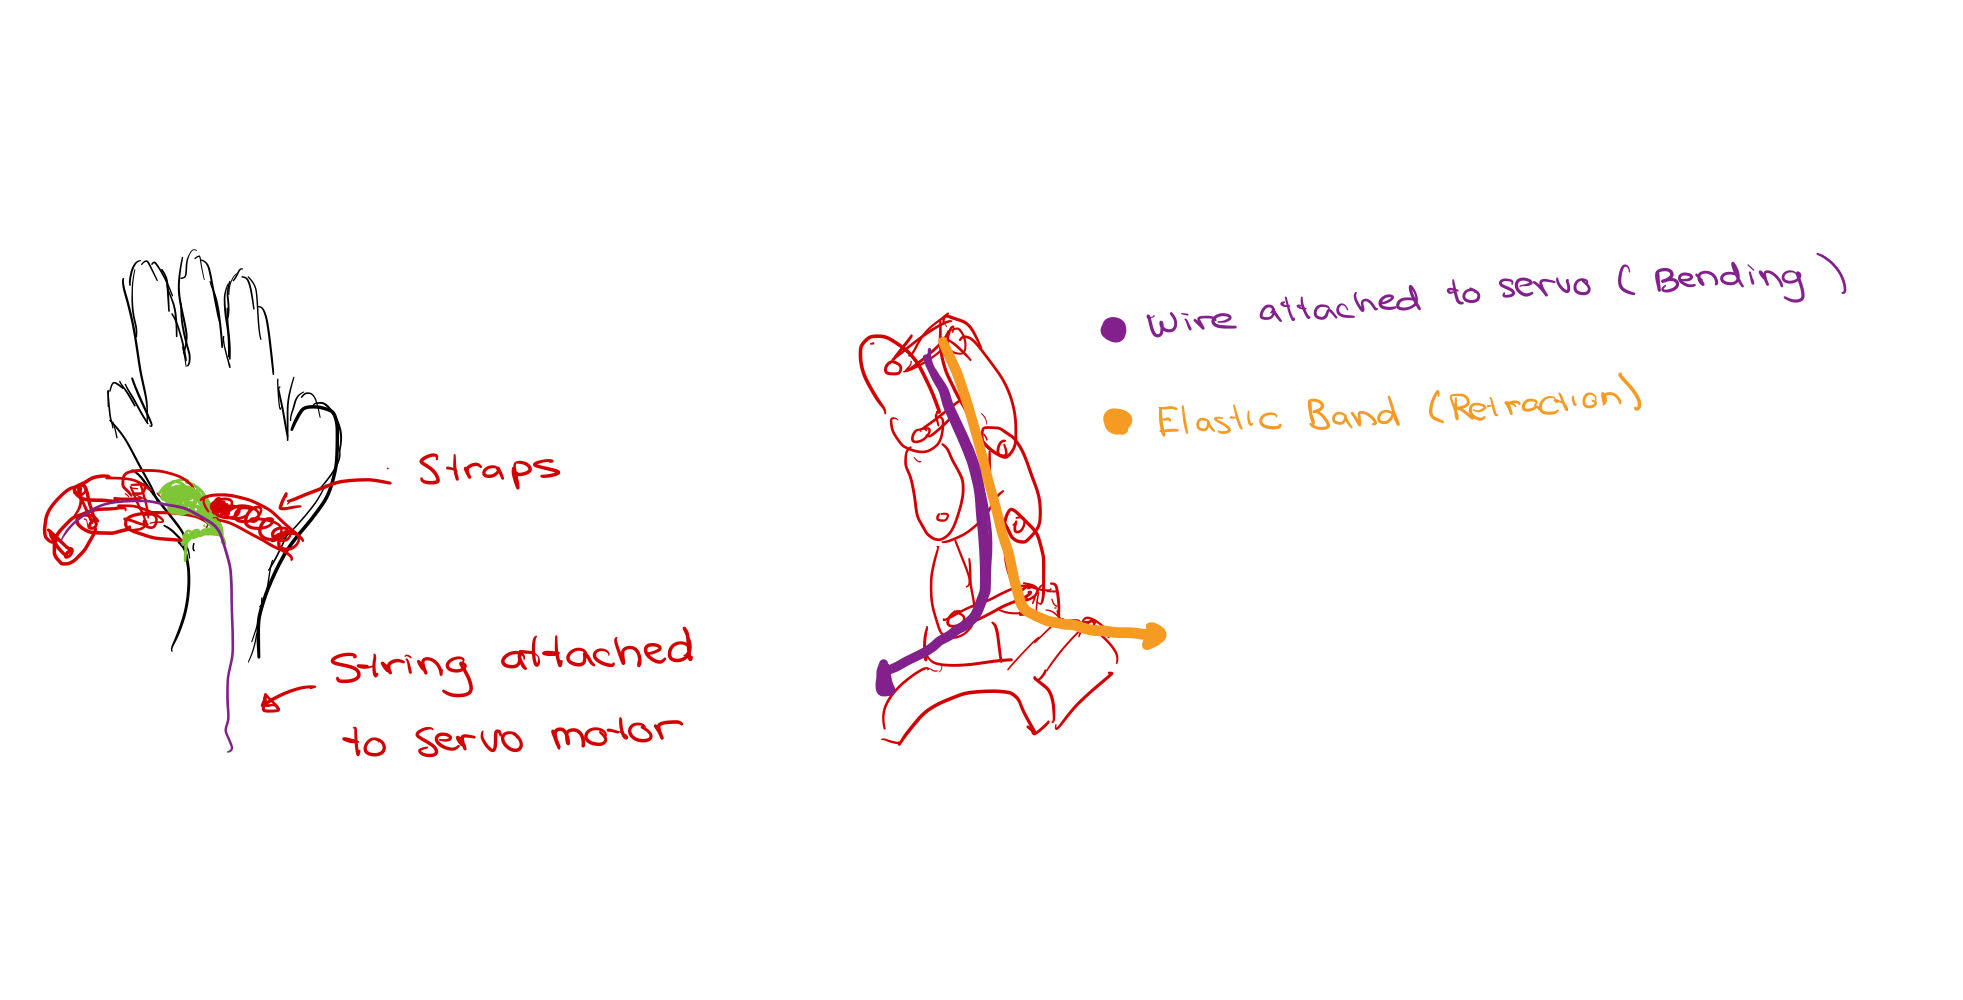 Straps
String attached
to servo motor
Wire attached to servo ( Bending )
Elastic Band (Retraction)